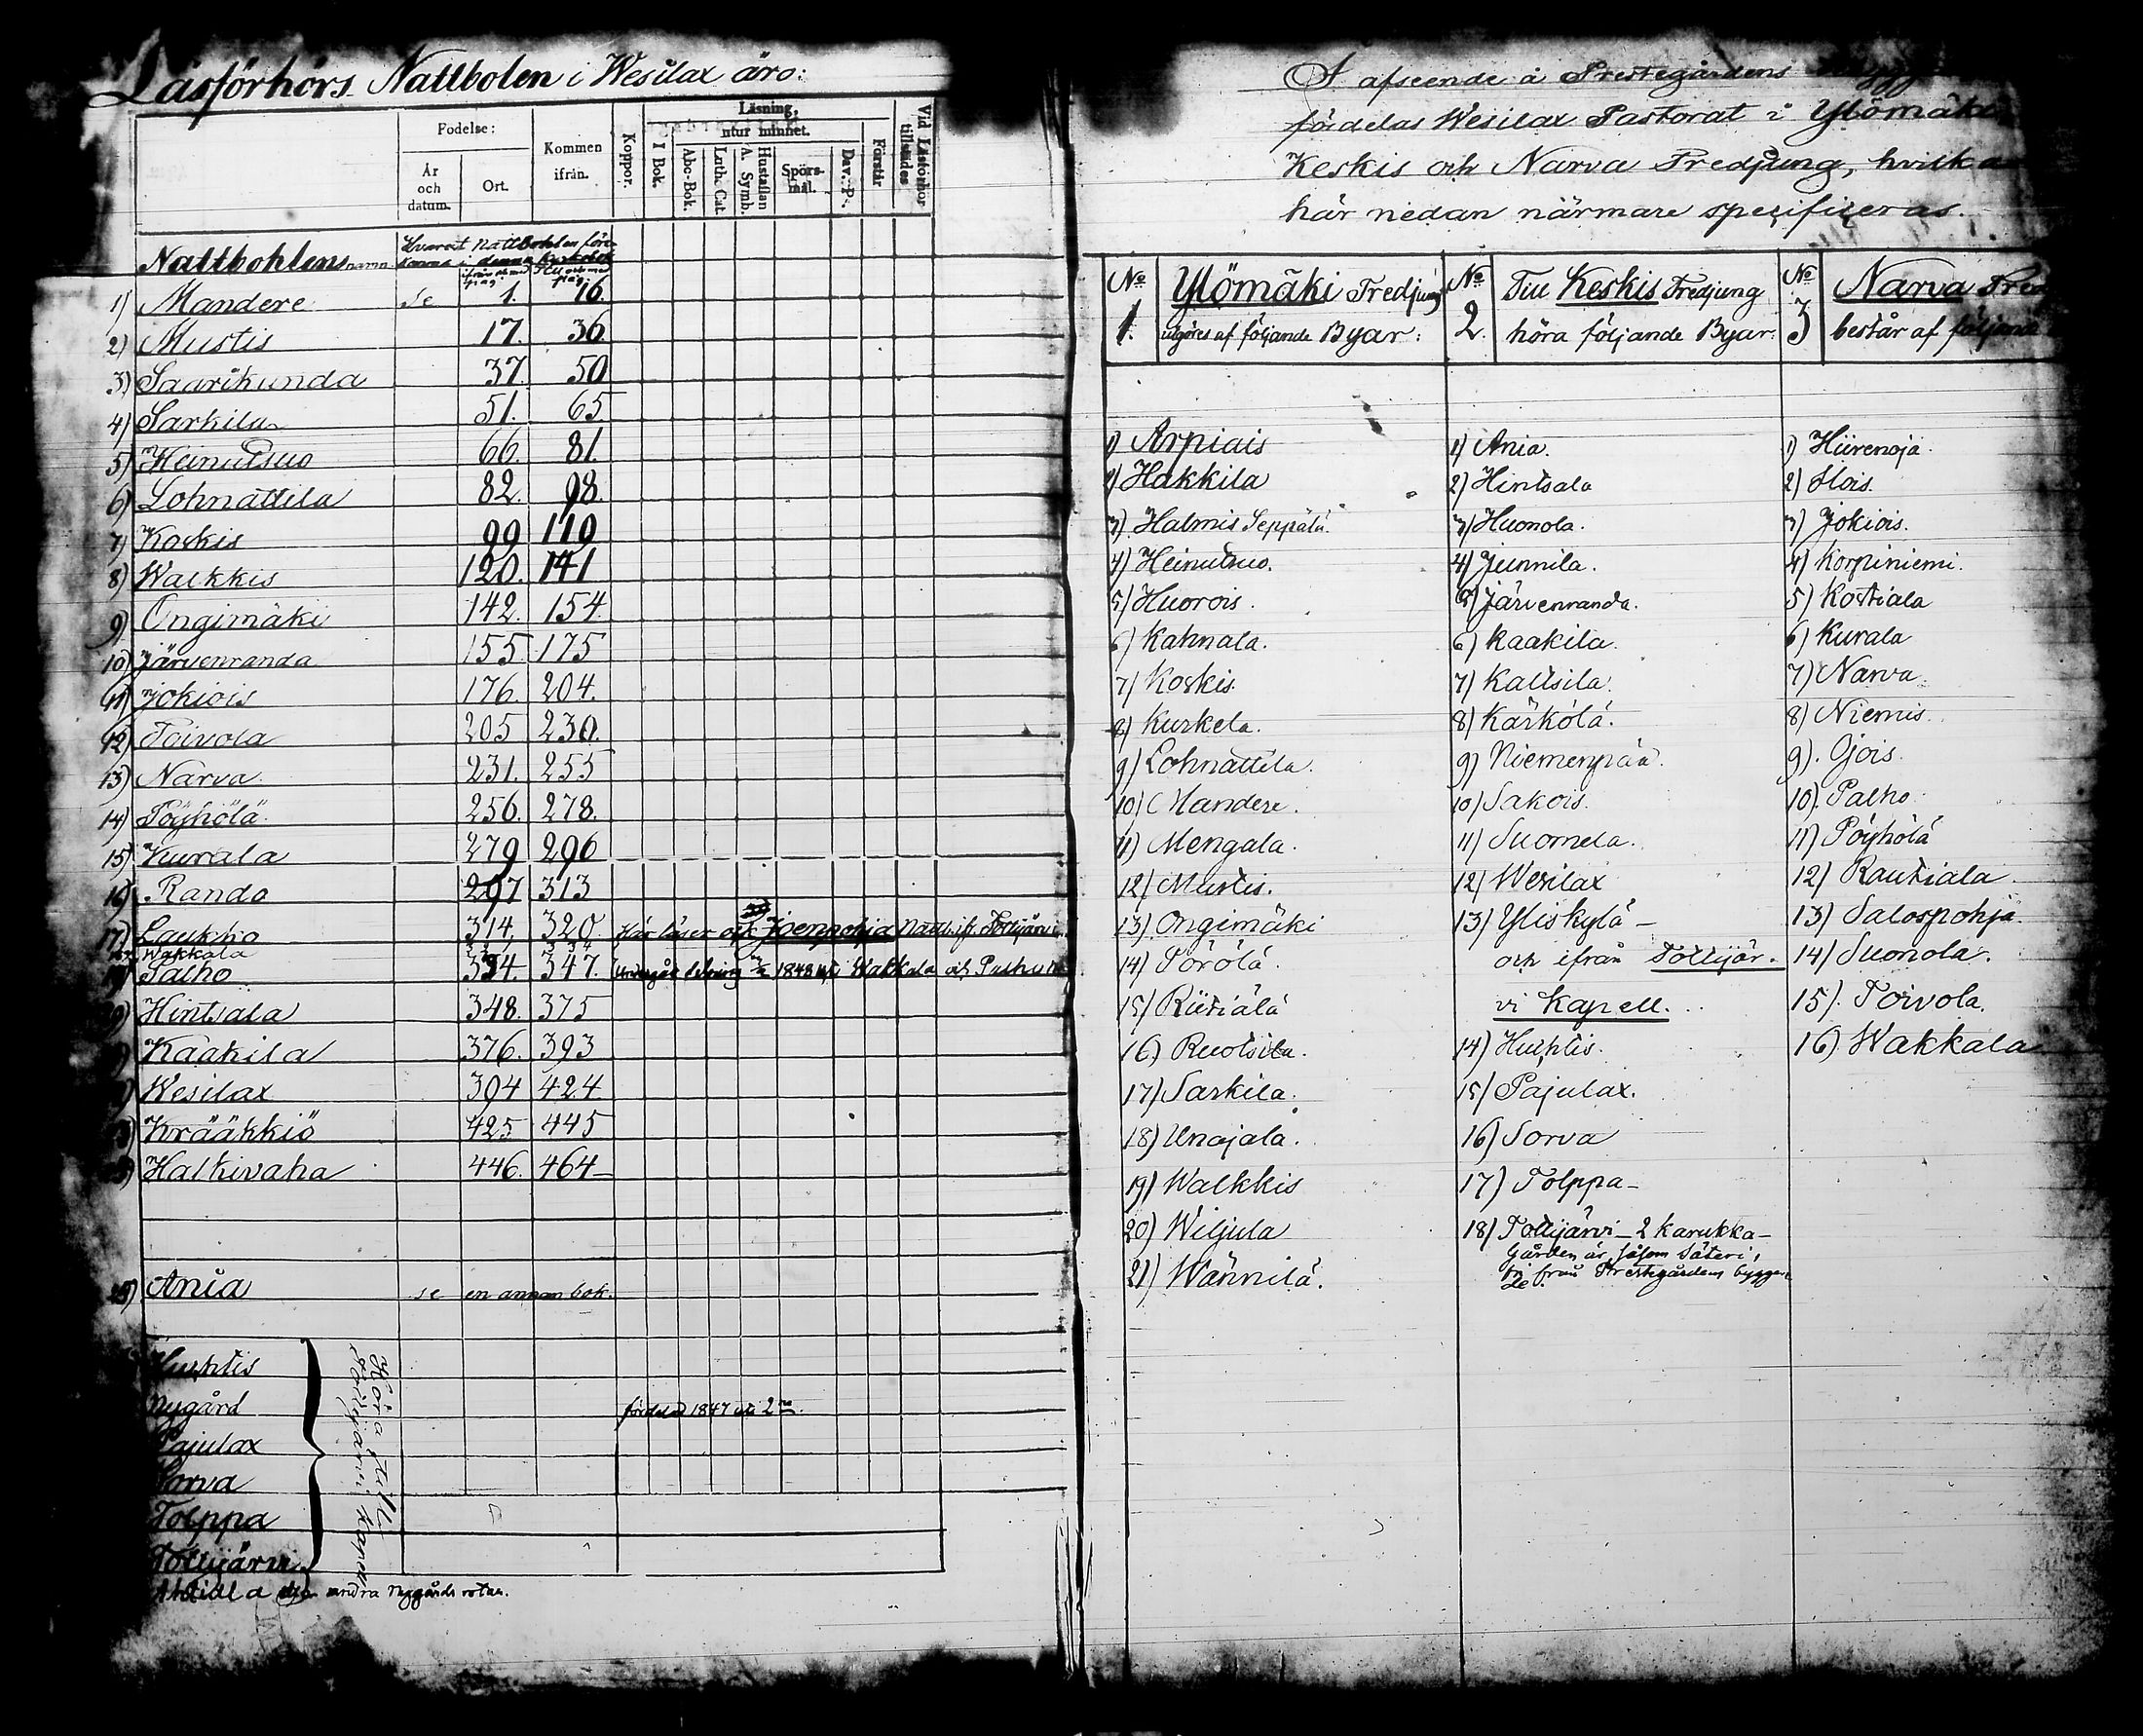 Läsförhörs Nattbolen i Wesilax äro:
Fodelse: Kommen ifrån. Koppor. Läsning, utur minnet. Förstår Vid Läsförhör tillstädes
År och datum. Ort. I Bok. Abc-Bok. Luth. Cat. A. Symb. Hustaflan Spörsmål. Dav. P.
Nattbohlens namn Hvarest Nattbohlen förekomma i denna Kyrkobok
ifrån och med pag. Till och med pag.
1) Mandere se 1. 16.
2) Mustis 17. 36.
3) Saarikunda 37. 50
4) Sarkila 51. 65.
5) Heinutsuo 66. 81.
6) Lohnattila 82. 98.
7) Koskis 99 119
8) Walkkis 120. 141
9) Ongimäki 142. 154.
10) Järvenranda 155 175
11) Jokiois 176. 204.
12) Toivola 205 230.
13) Narva 231. 255
14) Pöyhölä 256. 278.
15) Kurala 279 296
16) Rando 297 313
17) Laukko 314, 320 Här läser och Joenpohja Nattb. ifr. Tottijärvi
Wakkala
Palho 334. 347. 1848 Wakkala och
Hintsala 348. 375
Kaakila 376. 393
Wesilax 394 424
Krääkkiö 425 445
Halkivaha 446. 464
25) Ania se en annan bok.
Huhtis
Nygård fördelad 1847 uti 2ne.
Pajulax
Sorva
Tolppa
Tottijärvi
Höra till Tottijärvi Kapell
Ahtiala den andra Nygårds rotan.
I afseende å Prestegårdens
fördelas Wesilax Pastorat i Ylömäki
Keskis och Narva Tredjung, hvilka
här nedan närmare specificeras.
No 1. Ylömäki Tredjung
utgöres af följande Byar:
1) Arpiais
2) Hakkila
3) Halmis Seppälä
4) Heinutsuo.
5) Huorois.
6) Kahnala.
7) Koskis.
8) Kurkela.
9) Lohnattila.
10) Mandere.
11) Mengala.
12) Mustis.
13) Ongimäki
14) Pörölä.
15) Riitiälä
16) Ruotsila.
17) Sarkila.
18) Unajala.
19) Walkkis
20) Wiljula
21) Wännilä.
No 2. Till Keskis Tredjung
höra följande Byar:
1) Ania.
2) Hintsala
3) Huonola.
4) Junnila.
5) Järvenranda.
6) Kaakila.
7) Kaltsila.
8) Kärkölä.
9) Niemenpää.
10) Sakois.
11) Suomela.
12) Wesilax
13) Yliskylä –
och ifrån Tottijär-
vi Kapell.
14) Huhtis.
15) Pajulax.
16) Sorva
17) Tolppa –
18) Tottijärvi – 2 Karukka –
Gården är, såsom Säteri,
fri från Prestegårdens byggan-
de.
No 3 Narva
består af följande
1) Hiirenoja.
2) Hois.
3) Jokiois.
4) Korpiniemi.
5) Kostiala
6) Kurala
7) Narva.
8) Niemis.
9). Ojois.
10). Palho
11) Pöyhölä
12) Rautiala.
13) Salospohja.
14) Suonola.
15). Toivola.
16). Wakkala